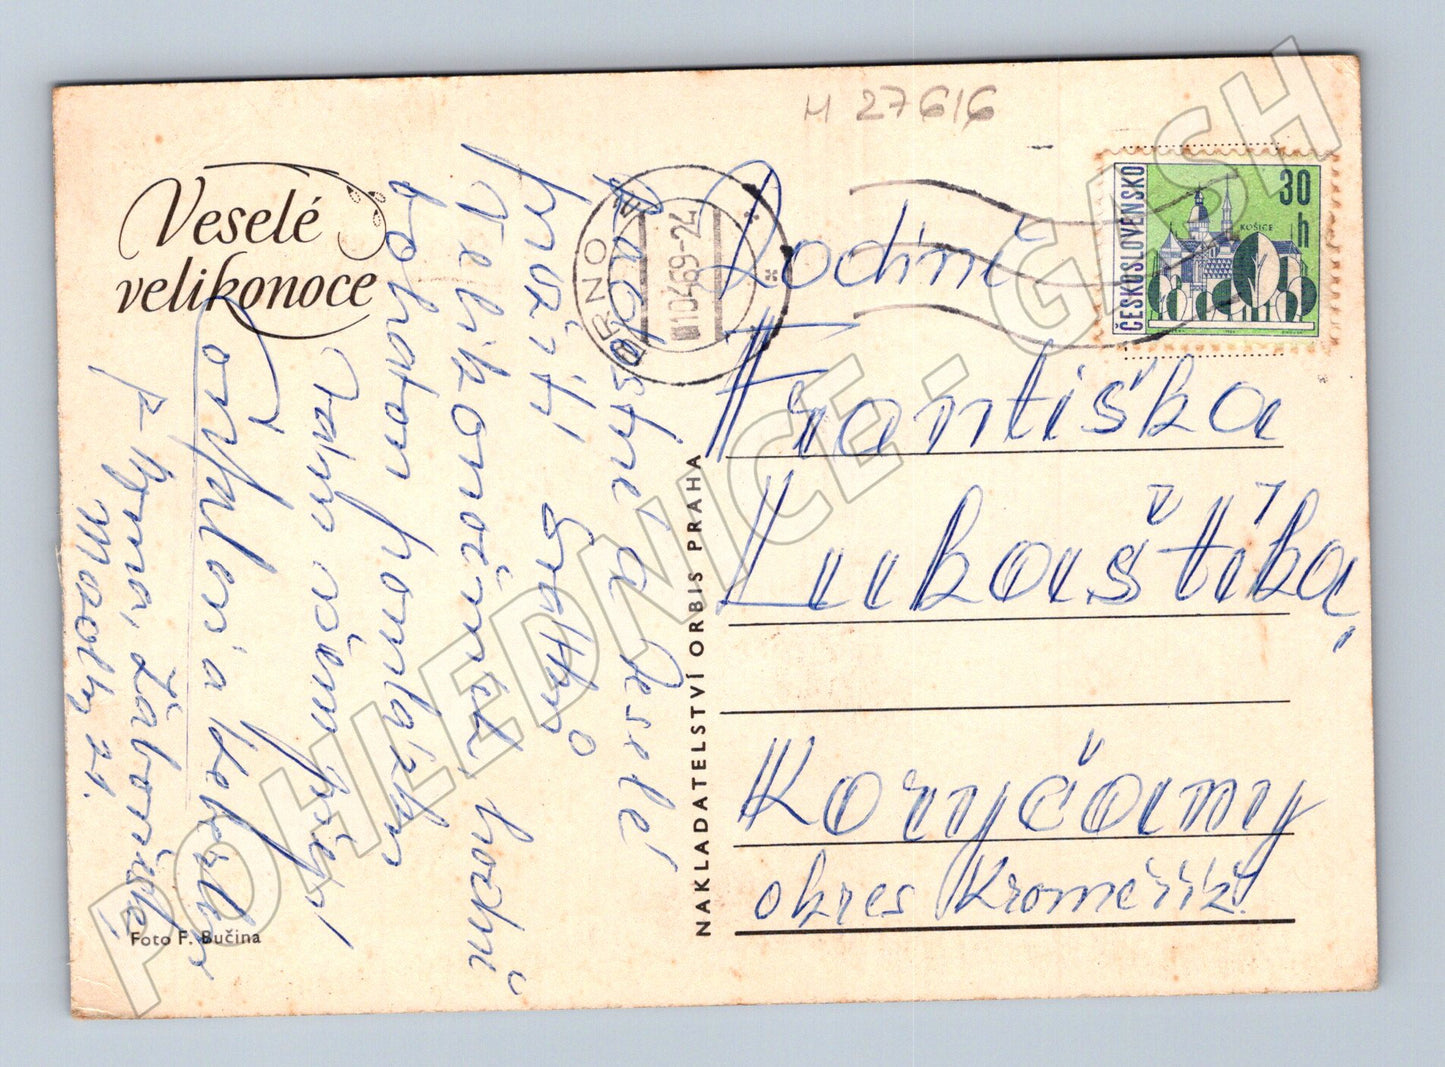 M 27616
Veselé
velikonoce
BRNO
10.4.69-24
ČESKOSLOVENSKO
30
h
KOŠICE
Radostné a veselé
prožití Svátků
Velikonočních hodně
bohatou pomlázku
Vám všem přejí
p. Brno, Žabovřesky
Maothy 21.
Rodině
Františka
Lukaštíka,
Koryčany
okres Kroměříž.
NAKLADATELSTVÍ ORBIS PRAHA
Foto F. Bučina
POHLEDNICE - GASH